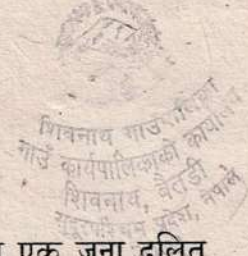 शिवनाथ गाउँपालिका
गाउँ कार्यपालिकाको कार्यालय
शिवनाथ, बैतडी
सुदूरपश्चिम प्रदेश, नेपाल
एक जना दलित